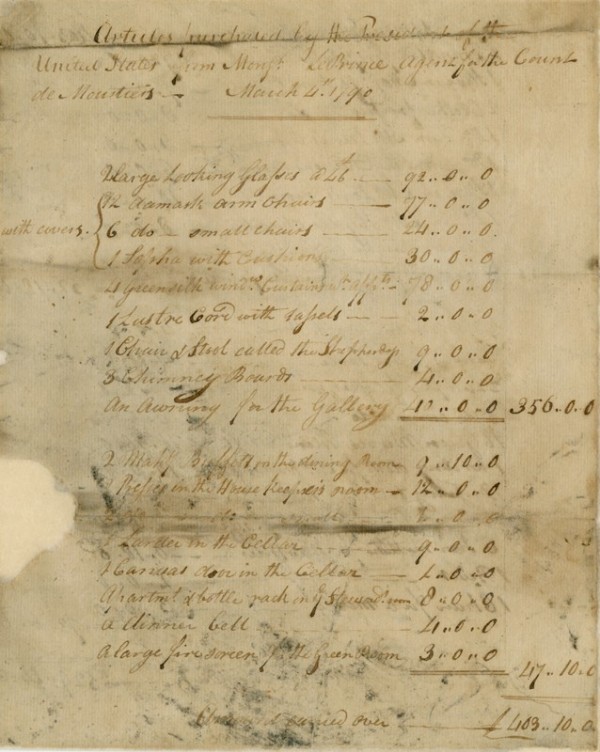 Articles purchased by the President of the
United States from Monsr. Le Prince Agent for the Count
de Moustiers — March 4th. 1790
2 large Looking Glasses a £46 — 92..0..0
12 damask arm Chairs — 77..0..0
with covers. 6 do — small chairs — 24..0..0
1 Sopha with Cushions 30..0..0
4 Green silk windw. Curtains — 78..0..0
1 Lustre Cord with tassels — 2..0..0
1 Chair & Stool called the Shepherds 9..0..0
3 Chimney Boards — 4..0..0
An Awning for the Gallery 40..0..0 356..0..0
2 Mahy. Buffets in the dining Room 9..10..0
Presses in the House keepers room — 12..0..0
..0..0
1 Larder in the Cellar — 9..0..0
1 Canvas door in the Cellar — 1..0..0
Apartmt. & bottle rack in ye Steward room 8..0..0
a dinner bell — 4..0..0
a large fire screen in the Green room 3..0..0
47..10..0
Amount carried over — £403..10..0